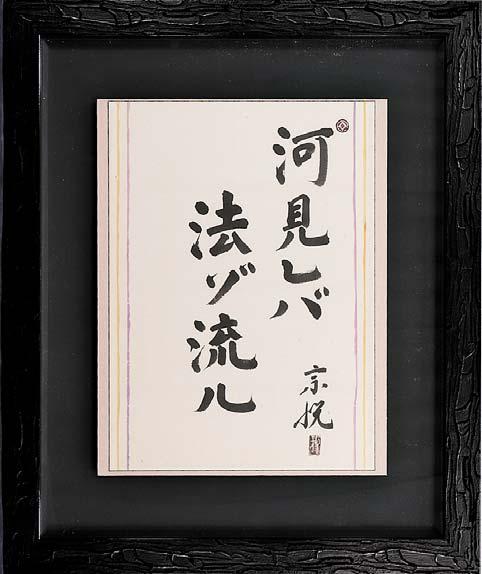 河見レバ
法ゾ流ル
宗悦